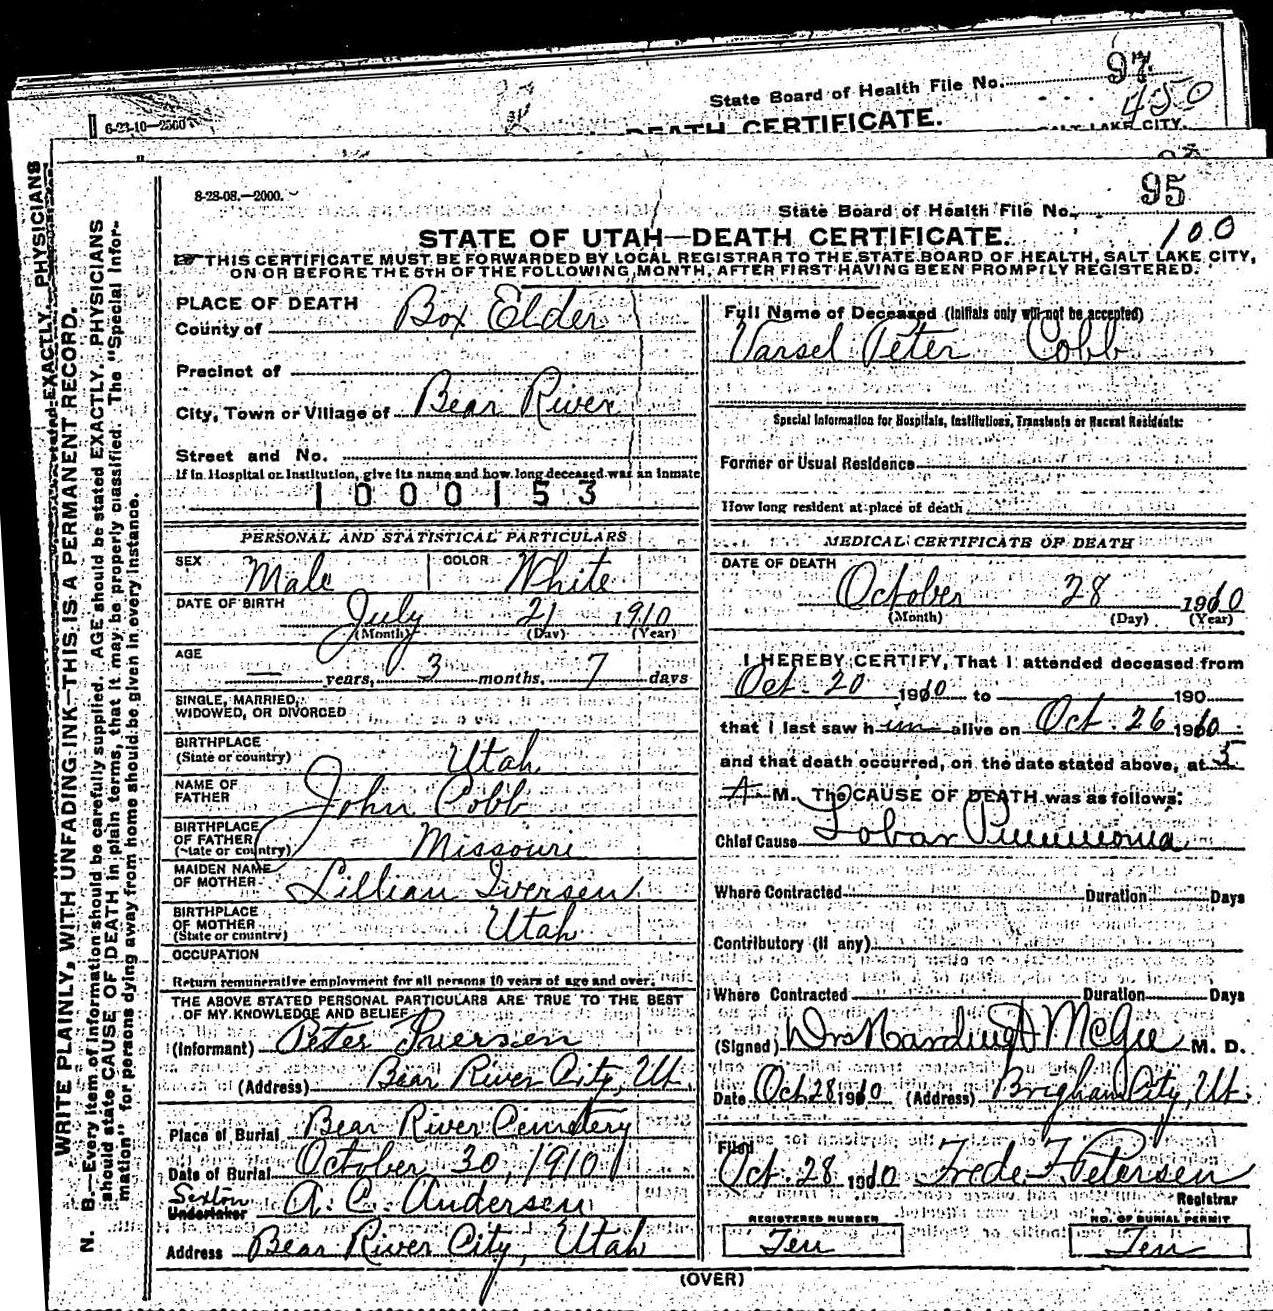 State Board of Health File No. 97
450
6-23-10—2500
DEATH CERTIFICATE.
SALT LAKE CITY,
8-28-08.—2000.
95
State Board of Health File No.
100
STATE OF UTAH—DEATH CERTIFICATE.
THIS CERTIFICATE MUST BE FORWARDED BY LOCAL REGISTRAR TO THE STATE BOARD OF HEALTH, SALT LAKE CITY,
ON OR BEFORE THE 5TH OF THE FOLLOWING MONTH, AFTER FIRST HAVING BEEN PROMPTLY REGISTERED.
PLACE OF DEATH
County of Box Elder
Precinct of
City, Town or Village of Bear River
Street and No.
If in Hospital or Institution, give its name and how long deceased was an inmate
1000153
PERSONAL AND STATISTICAL PARTICULARS
SEX Male COLOR White
DATE OF BIRTH July 21 1910
(Month) (Day) (Year)
AGE — years, 3 months, 7 days
SINGLE, MARRIED,
WIDOWED, OR DIVORCED
BIRTHPLACE
(State or country) Utah
NAME OF
FATHER John Cobb
BIRTHPLACE
OF FATHER
(State or country) Missouri
MAIDEN NAME
OF MOTHER Lillian Iversen
BIRTHPLACE
OF MOTHER
(State or country) Utah
OCCUPATION
Return remunerative employment for all persons 10 years of age and over.
THE ABOVE STATED PERSONAL PARTICULARS ARE TRUE TO THE BEST
OF MY KNOWLEDGE AND BELIEF
(Informant) Peter Iversen
(Address) Bear River City, Ut.
Place of Burial Bear River Cemetery
Date of Burial October 30, 1910
Sexton
Undertaker A. C. Andersen
Address Bear River City, Utah
Full Name of Deceased (Initials only will not be accepted)
Varsel Peter Cobb
Special Information for Hospitals, Institutions, Transients or Recent Residents:
Former or Usual Residence
How long resident at place of death
MEDICAL CERTIFICATE OF DEATH
DATE OF DEATH
October 28 1910
(Month) (Day) (Year)
I HEREBY CERTIFY, That I attended deceased from
Oct. 20 1910 to 190
that I last saw him alive on Oct. 26 1910
and that death occurred, on the date stated above, at 5
A. M. The CAUSE OF DEATH was as follows:
Chief Cause Lobar Pneumonia
Where Contracted Duration Days
Contributory (if any)
Where Contracted Duration Days
(Signed) Drs Harding & McGee M. D.
Date Oct 28 1910 (Address) Brigham City, Ut.
Filed
Oct. 28 1910 Frede F Petersen
Registrar
REGISTERED NUMBER
Ten
NO. OF BURIAL PERMIT
Ten
(OVER)
WRITE PLAINLY, WITH UNFADING INK—THIS IS A PERMANENT RECORD.
N. B.—Every item of information should be carefully supplied. AGE should be stated EXACTLY. PHYSICIANS
should state CAUSE OF DEATH in plain terms, that it may be properly classified. The "Special Infor-
mation" for persons dying away from home should be given in every instance.
stated EXACTLY. PHYSICIANS